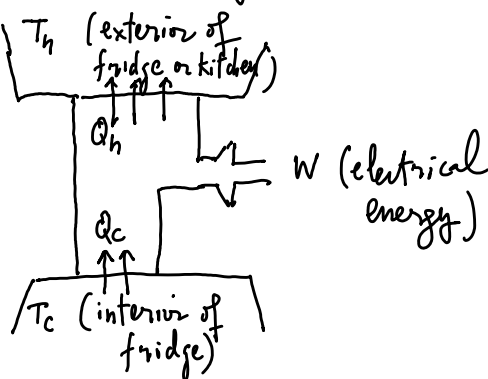 T_h (exterior of
fridge or kitchen)
Q_h
W (electrical
energy)
Q_c
T_c (interior of
fridge)